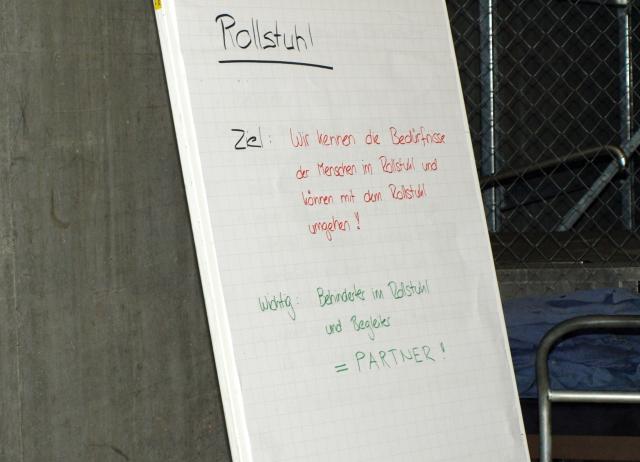 Rollstuhl
Ziel: Wir kennen die Bedürfnisse
der Menschen im Rollstuhl und
können mit dem Rollstuhl
umgehen!
Wichtig: Behinderter im Rollstuhl
und Begleiter
= PARTNER!